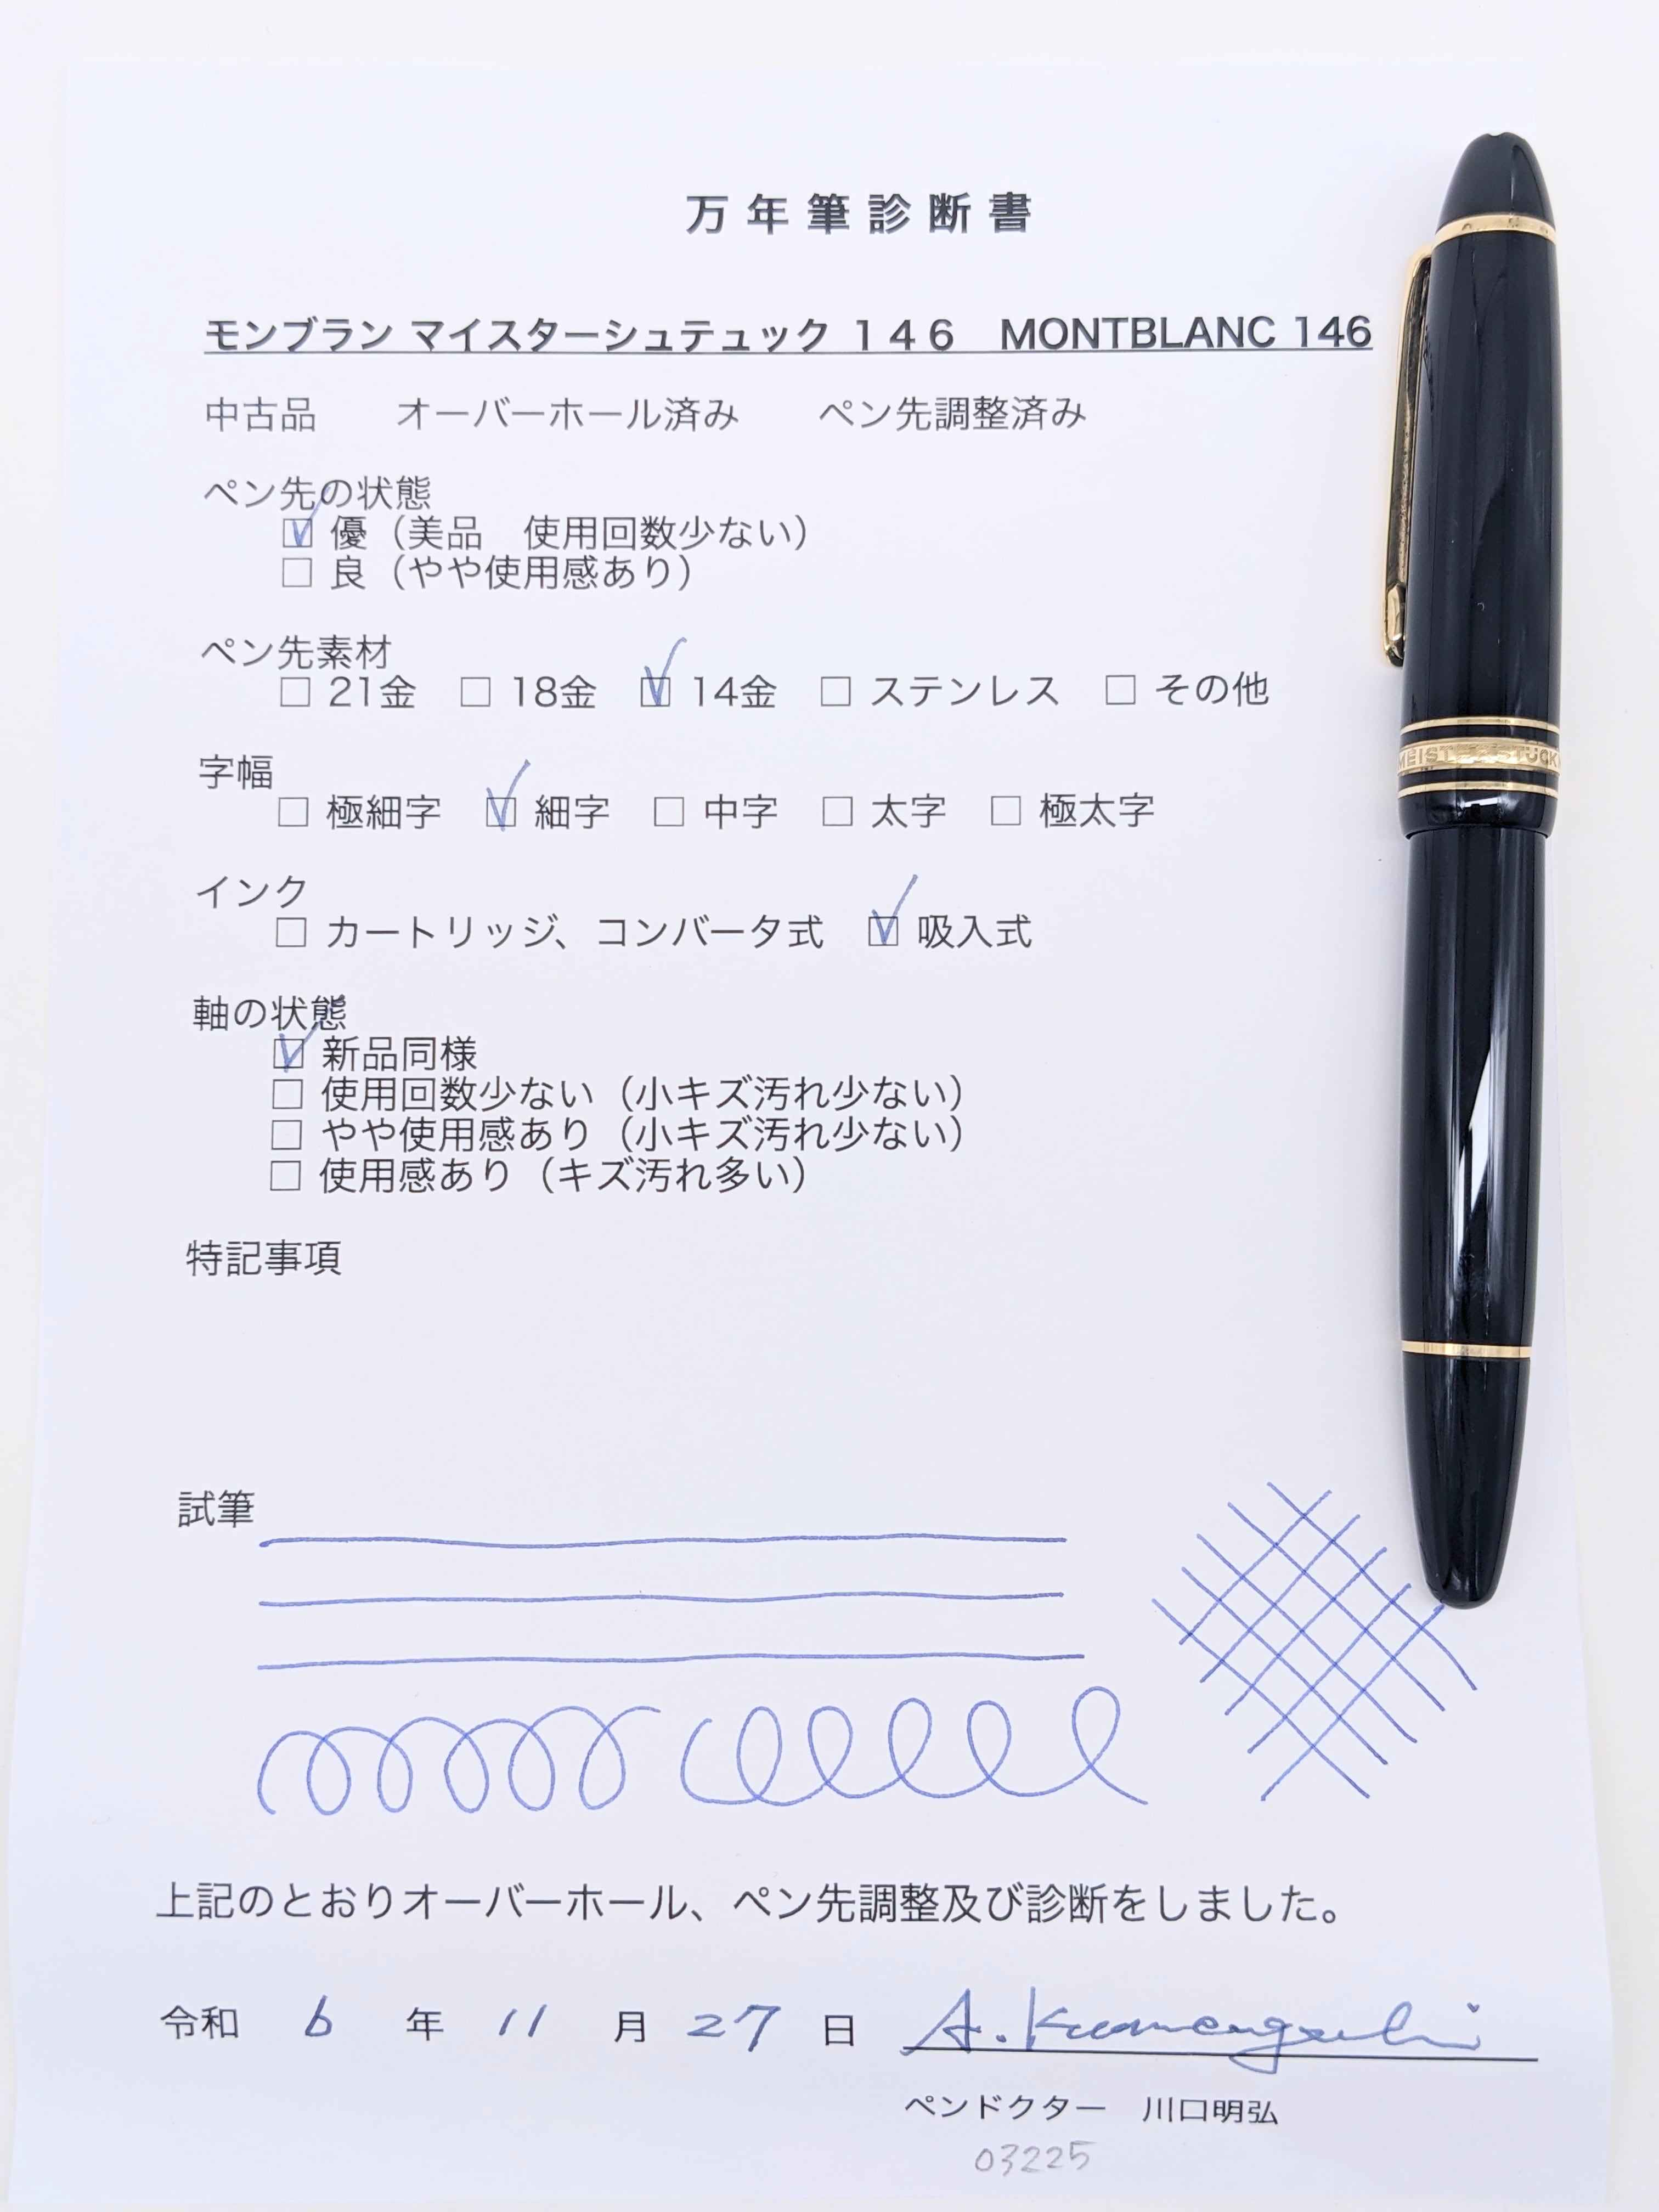 万年筆診断書
モンブラン マイスターシュテュック １４６　MONTBLANC 146
中古品　　オーバーホール済み　　ペン先調整済み
ペン先の状態
☑ 優（美品　使用回数少ない）
□ 良（やや使用感あり）
ペン先素材
□ 21金　□ 18金　☑ 14金　□ ステンレス　□ その他
字幅
□ 極細字　☑ 細字　□ 中字　□ 太字　□ 極太字
インク
□ カートリッジ、コンバータ式　☑ 吸入式
軸の状態
☑ 新品同様
□ 使用回数少ない（小キズ汚れ少ない）
□ やや使用感あり（小キズ汚れ少ない）
□ 使用感あり（キズ汚れ多い）
特記事項
試筆
上記のとおりオーバーホール、ペン先調整及び診断をしました。
令和　6　年　11　月　27　日　A.
ペンドクター　川口明弘
03225
MEISTERSTÜCK